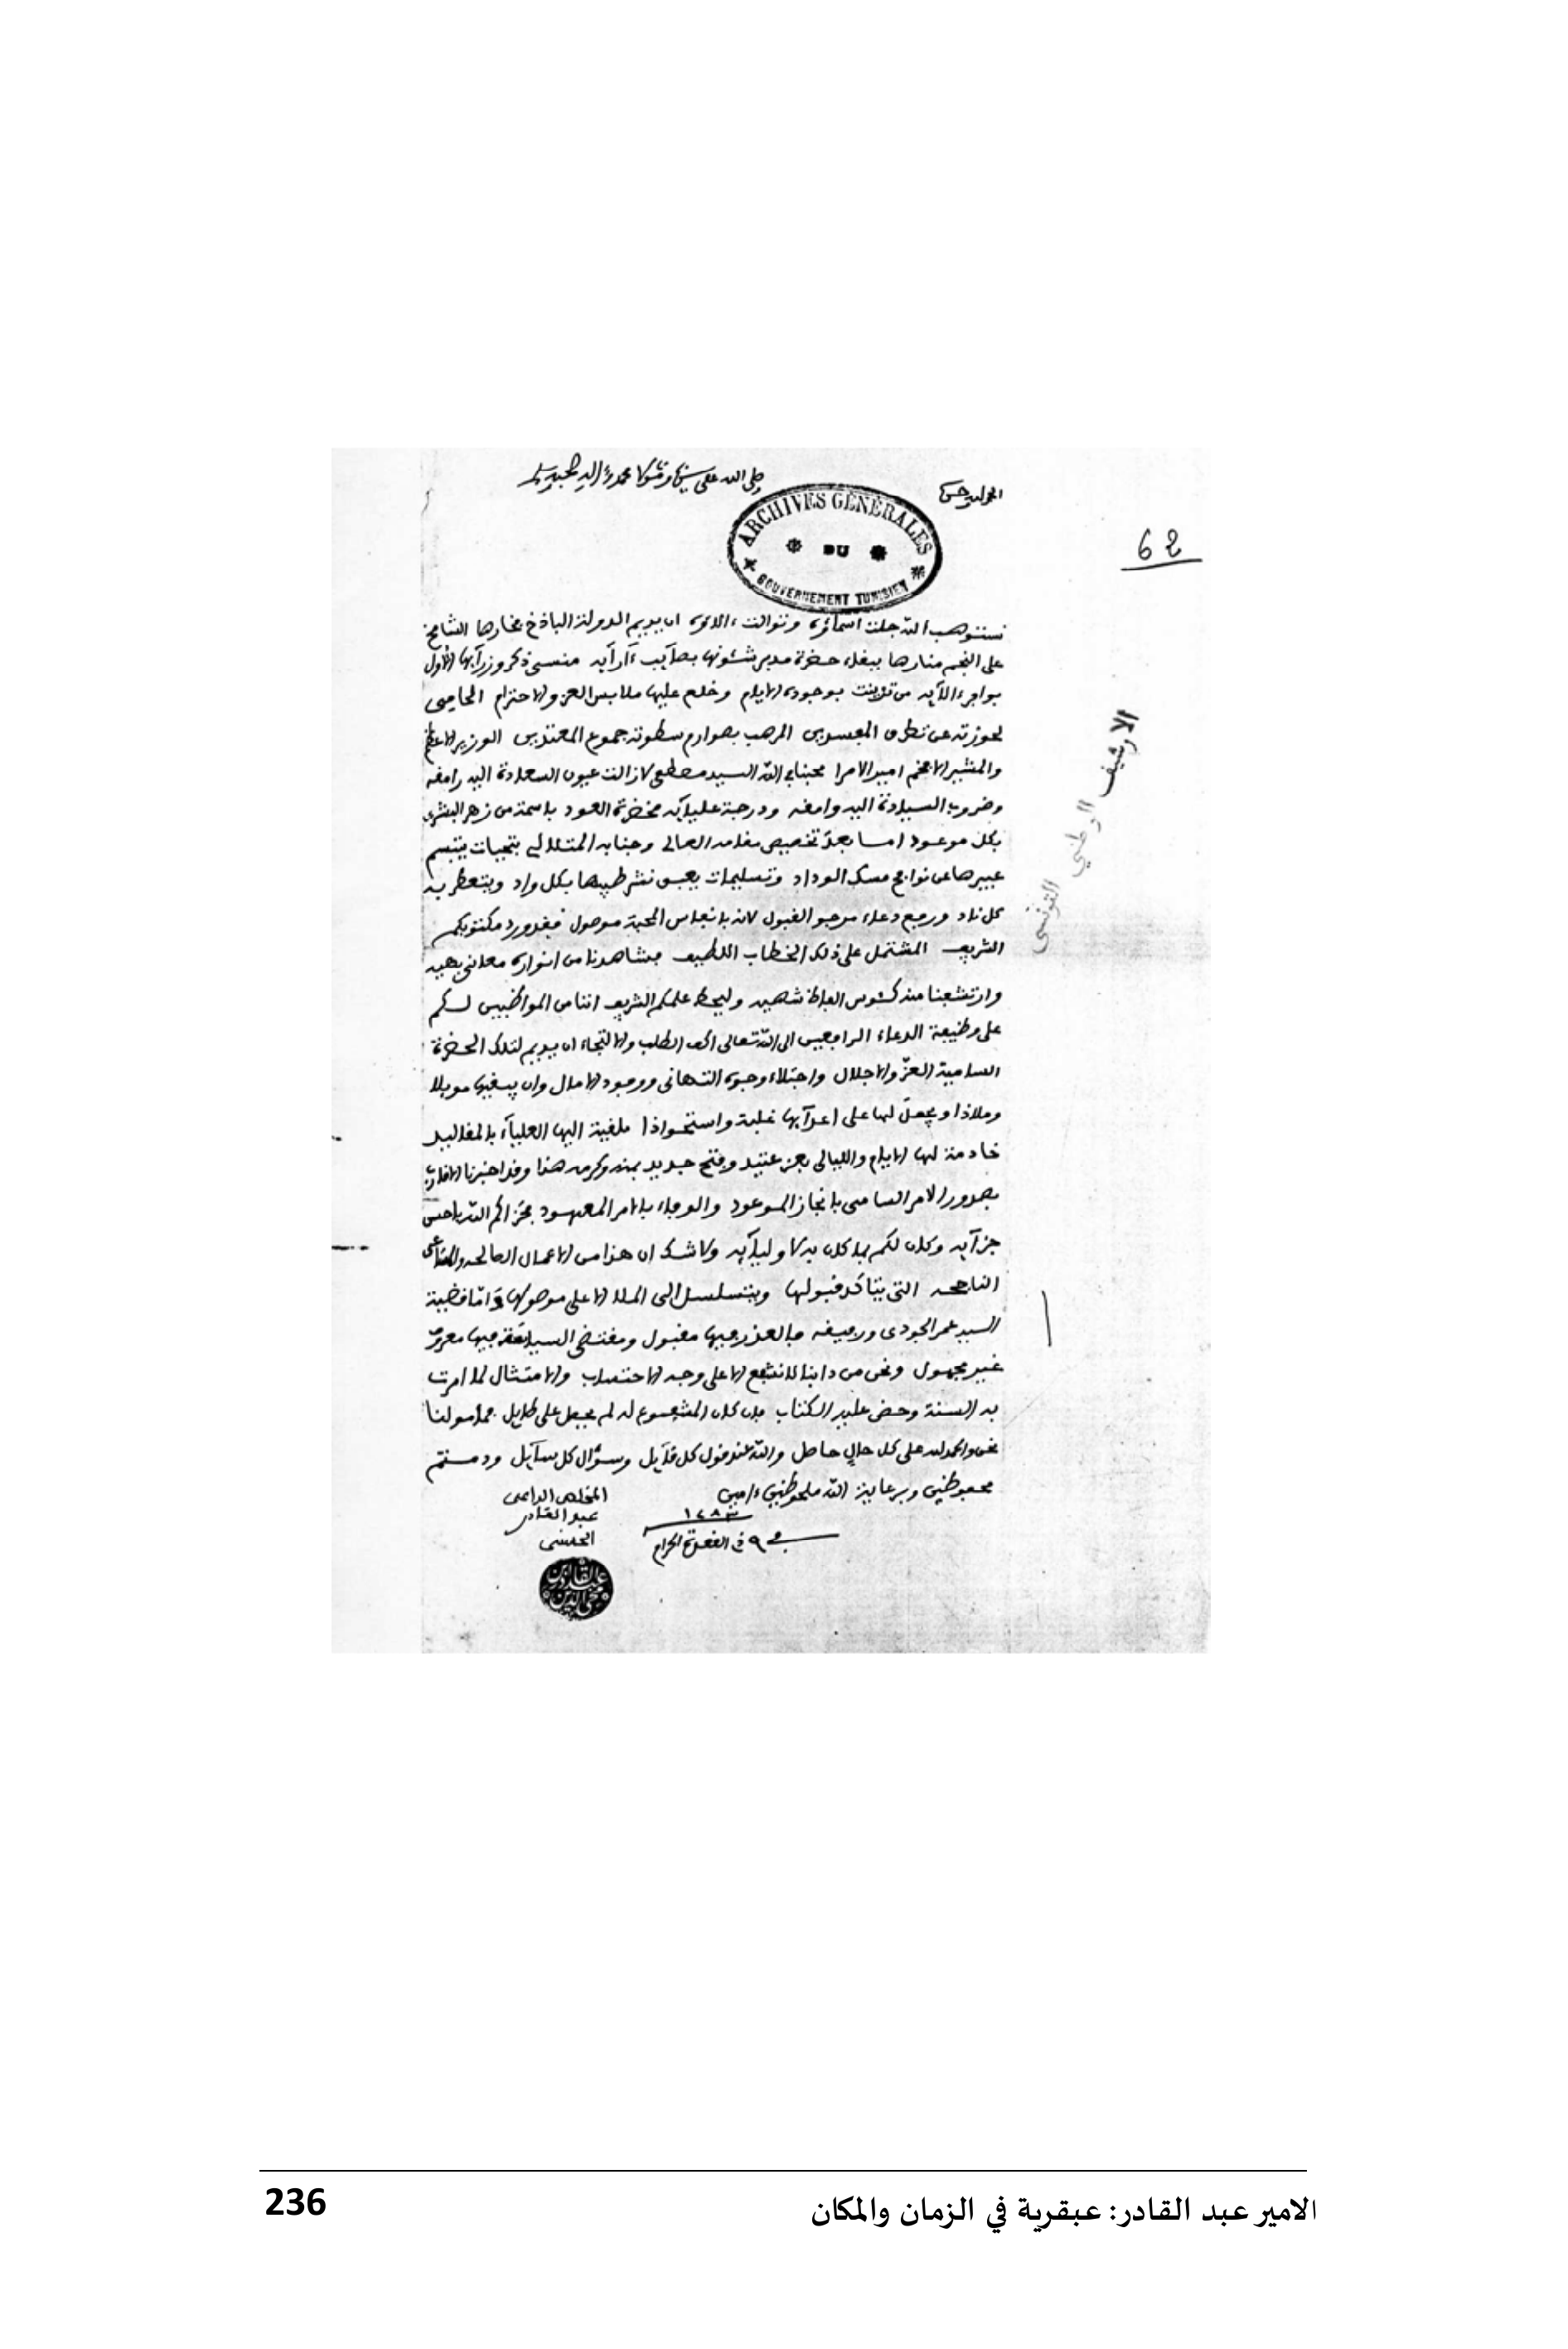 الحمد لله وحده
صلى الله على سيدنا ومولانا محمد وءاله وصحبه وسلم
ARCHIVES GÉNÉRALES
DU
GOUVERNEMENT TUNISIEN
62
الارشيف الوطني التونسي
نستوهب الله جلت اسماؤه وتوالت ءالاؤه ان يديم الدولة الباذخ فخارها الشامخ
على النجم منارها ببقاء حضرة مدبر شئونها بصآيب ءآرآيه منسى ذكر وزرآيها الاول
بوافر ءالآيه من تزينت بوجوده الايام وخلع عليها ملابس العز والاحترام الحامى
لحوزته عن تطرق المفسدين المرهب بصوارم سطوته جموع المعتدين الوزير الاعظم
والمشير الافخم امير الامرا محبنا في الله السيد مصطفى لا زالت عيون السعادة اليه رامقه
وضروب السيادة اليه وامقه ودرجة عليآيه مخضرة العود باسمة من زهر البشرى
بكل موعود امــا بعد تخصيص مقامه العالى وجنابه المتلالى بتحيات يبتسم
عبيرها عن نوافح مسك الوداد وتسليمات يعبق نشر طيبها بكل واد ويتعطر به
كل ناد ورفع دعاء مرجو القبول لانه بانفاس المحبة موصول فقد ورد مكتوبكم
الشريف المشتمل على ذلك الخطاب اللطيف فشاهدنا من انواره معانى بهيه
وارتشفنا من كئوس الفاظه شهيه وليحط علمكم الشريف اننا من المواظبين لــكم
على وظيفة الدعاء الرافعين الى الله تعالى اكف الطلب والالتجاء ان يديم لتلك الحضرة
السامية العز والاجلال واجتلاء وجوه التهانى ووجود الامال وان يبقيها موئلا
وملاذا ويجعل لها على اعدآيها غلبة واستحواذا ملقية اليها العليآء بالمقاليد
خادمة لها الايام والليالى بعز عتيد وفتح جديد بمنه وكرمه هذا وقد اخبرنا الاقارب
بصدور الامر السامى بانجاز الموعود والوفاء بالامر المعهود فجزاكم الله باحسن
جزآيه وكان لكم بما كان به لاوليآيه ولا شك ان هذا من الاعمال الصالحه والمساعى
الناجحه التى يتاكد قبولها ويتسلسل الى الملا الاعلى موصولها وامّا قضية
السيد عمر الجودى ورفيقه فالعذر فيها مقبول ومقتضى السياسة فيها معروف
غير مجهول ونحن من دابنا لا نشفع الا على وجه الاحتساب والامتثال لما امرت
به السنة وحض عليه الكتاب فان كان المشفوع له لم يحصل على طايل فمامولنا
نحن والحمد لله على كل حال حاصل والله عند قول كل قآيل وسؤال كل سآيل ودمــتم
محفوظين وبرعاية الله ملحوظين ءامين
فى ٩ ذى القعدة الحرام
١٢٨٣
المخلص الداعى
عبد القادر
الحسنى
عبد القادر بن محي الدين
الامير عبد القادر: عبقرية في الزمان والمكان
236